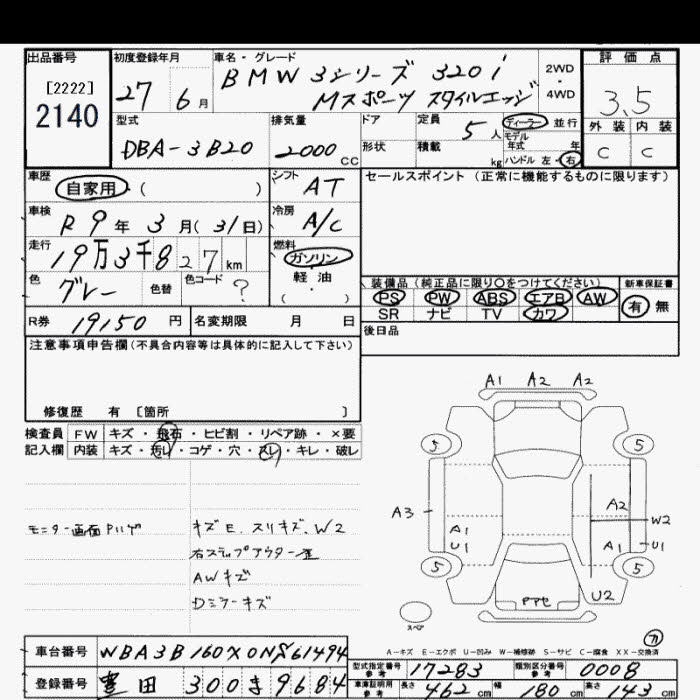 出品番号
[2222]
2140
初度登録年月
27 6月
車名・グレード
BMW 3シリーズ 320i
Mスポーツ スタイルエッジ
2WD
・
4WD
評価点
3.5
外装 内装
C C
型式
DBA-3B20
排気量
2000cc
ドア
形状
定員 5人
積載 kg
ディーラー 並行
モデル
年式 年
ハンドル 左・右
車歴
自家用 ( )
シフト AT
車検
R9年3月(31日)
冷房 A/C
走行
19万3千827km
燃料
ガソリン
軽・油
( )
色
グレー
色替
色コード ?
R券 19150円
名変期限 月 日
セールスポイント (正常に機能するものに限ります)
装備品 (純正品に限り○をつけてください)
PS PW ABS エアB AW
SR ナビ TV カワ
新車保証書
有 無
後日品
注意事項申告欄 (不具合内容等は具体的に記入して下さい)
修復歴 有 [箇所 ]
検査員
記入欄
FW キズ・飛石・ヒビ割・リペア跡・×要
内装 キズ・汚レ・コゲ・穴・スレ・キレ・破レ
キズE、スリキズ、W2
右ステップアウター歪
AWキズ
Dミラーキズ
A1 A2 A2
5 5
A3
A2
W2
A1
U1
A1 U1
5 5
U2
スペア
A-キズ E-エクボ U-凹み W-補修跡 S-サビ C-腐食 XX-交換済
車台番号
登録番号 豊田 300 ま 9684
型式指定番号
参考
17283
類別区分番号
参考
0008
車庫証明用
参考
長さ 462 cm
幅 180 cm
高さ 143 cm